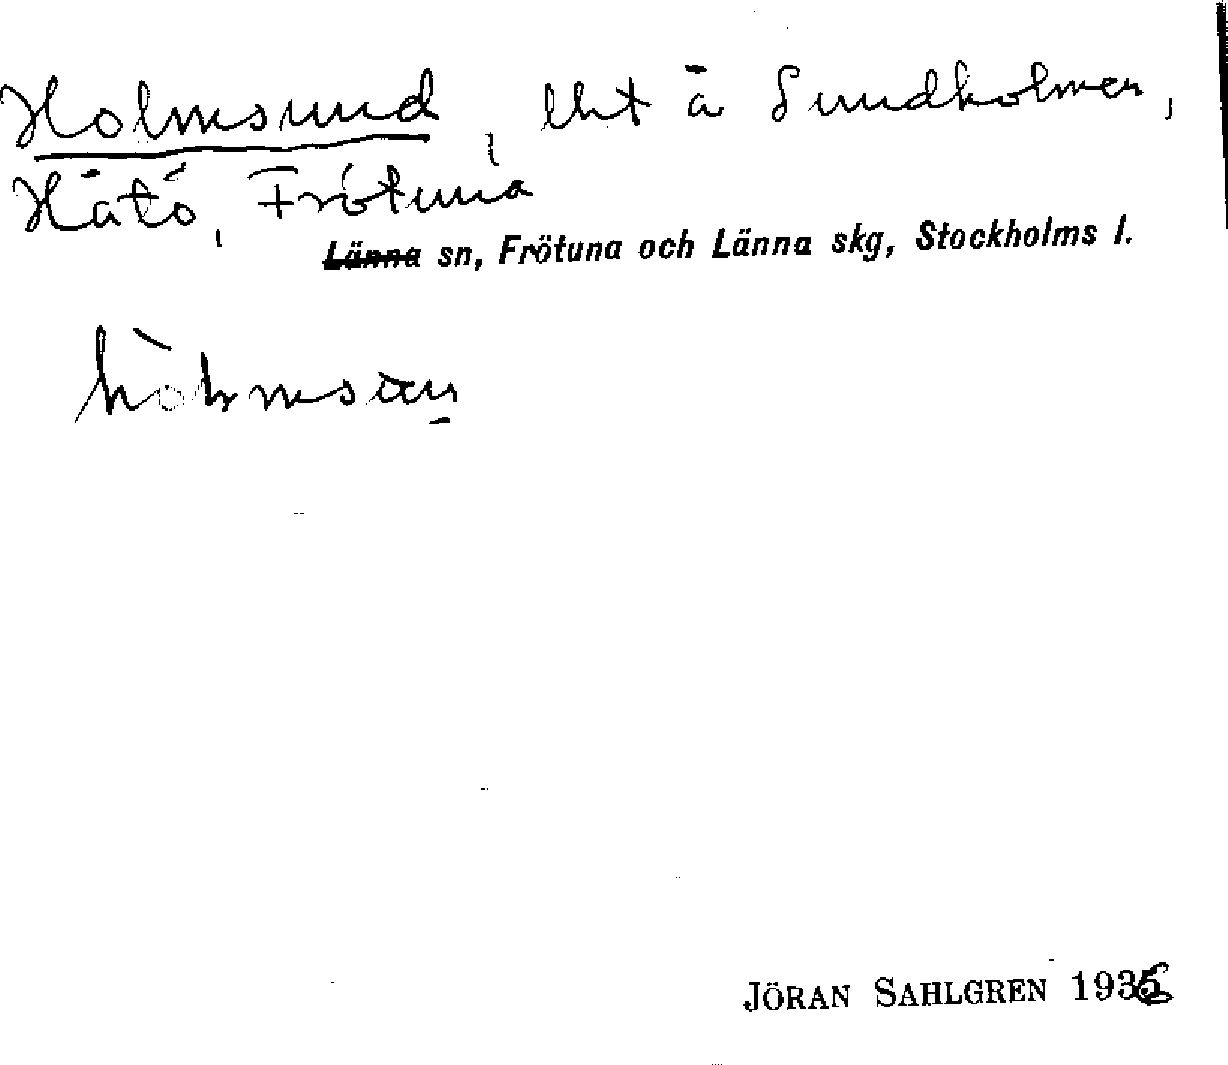 Holmsund, lht å Sundholmen,
Hätö, Frötuna
Länna sn, Frötuna och Länna skg, Stockholms l.
JÖRAN SAHLGREN 1936